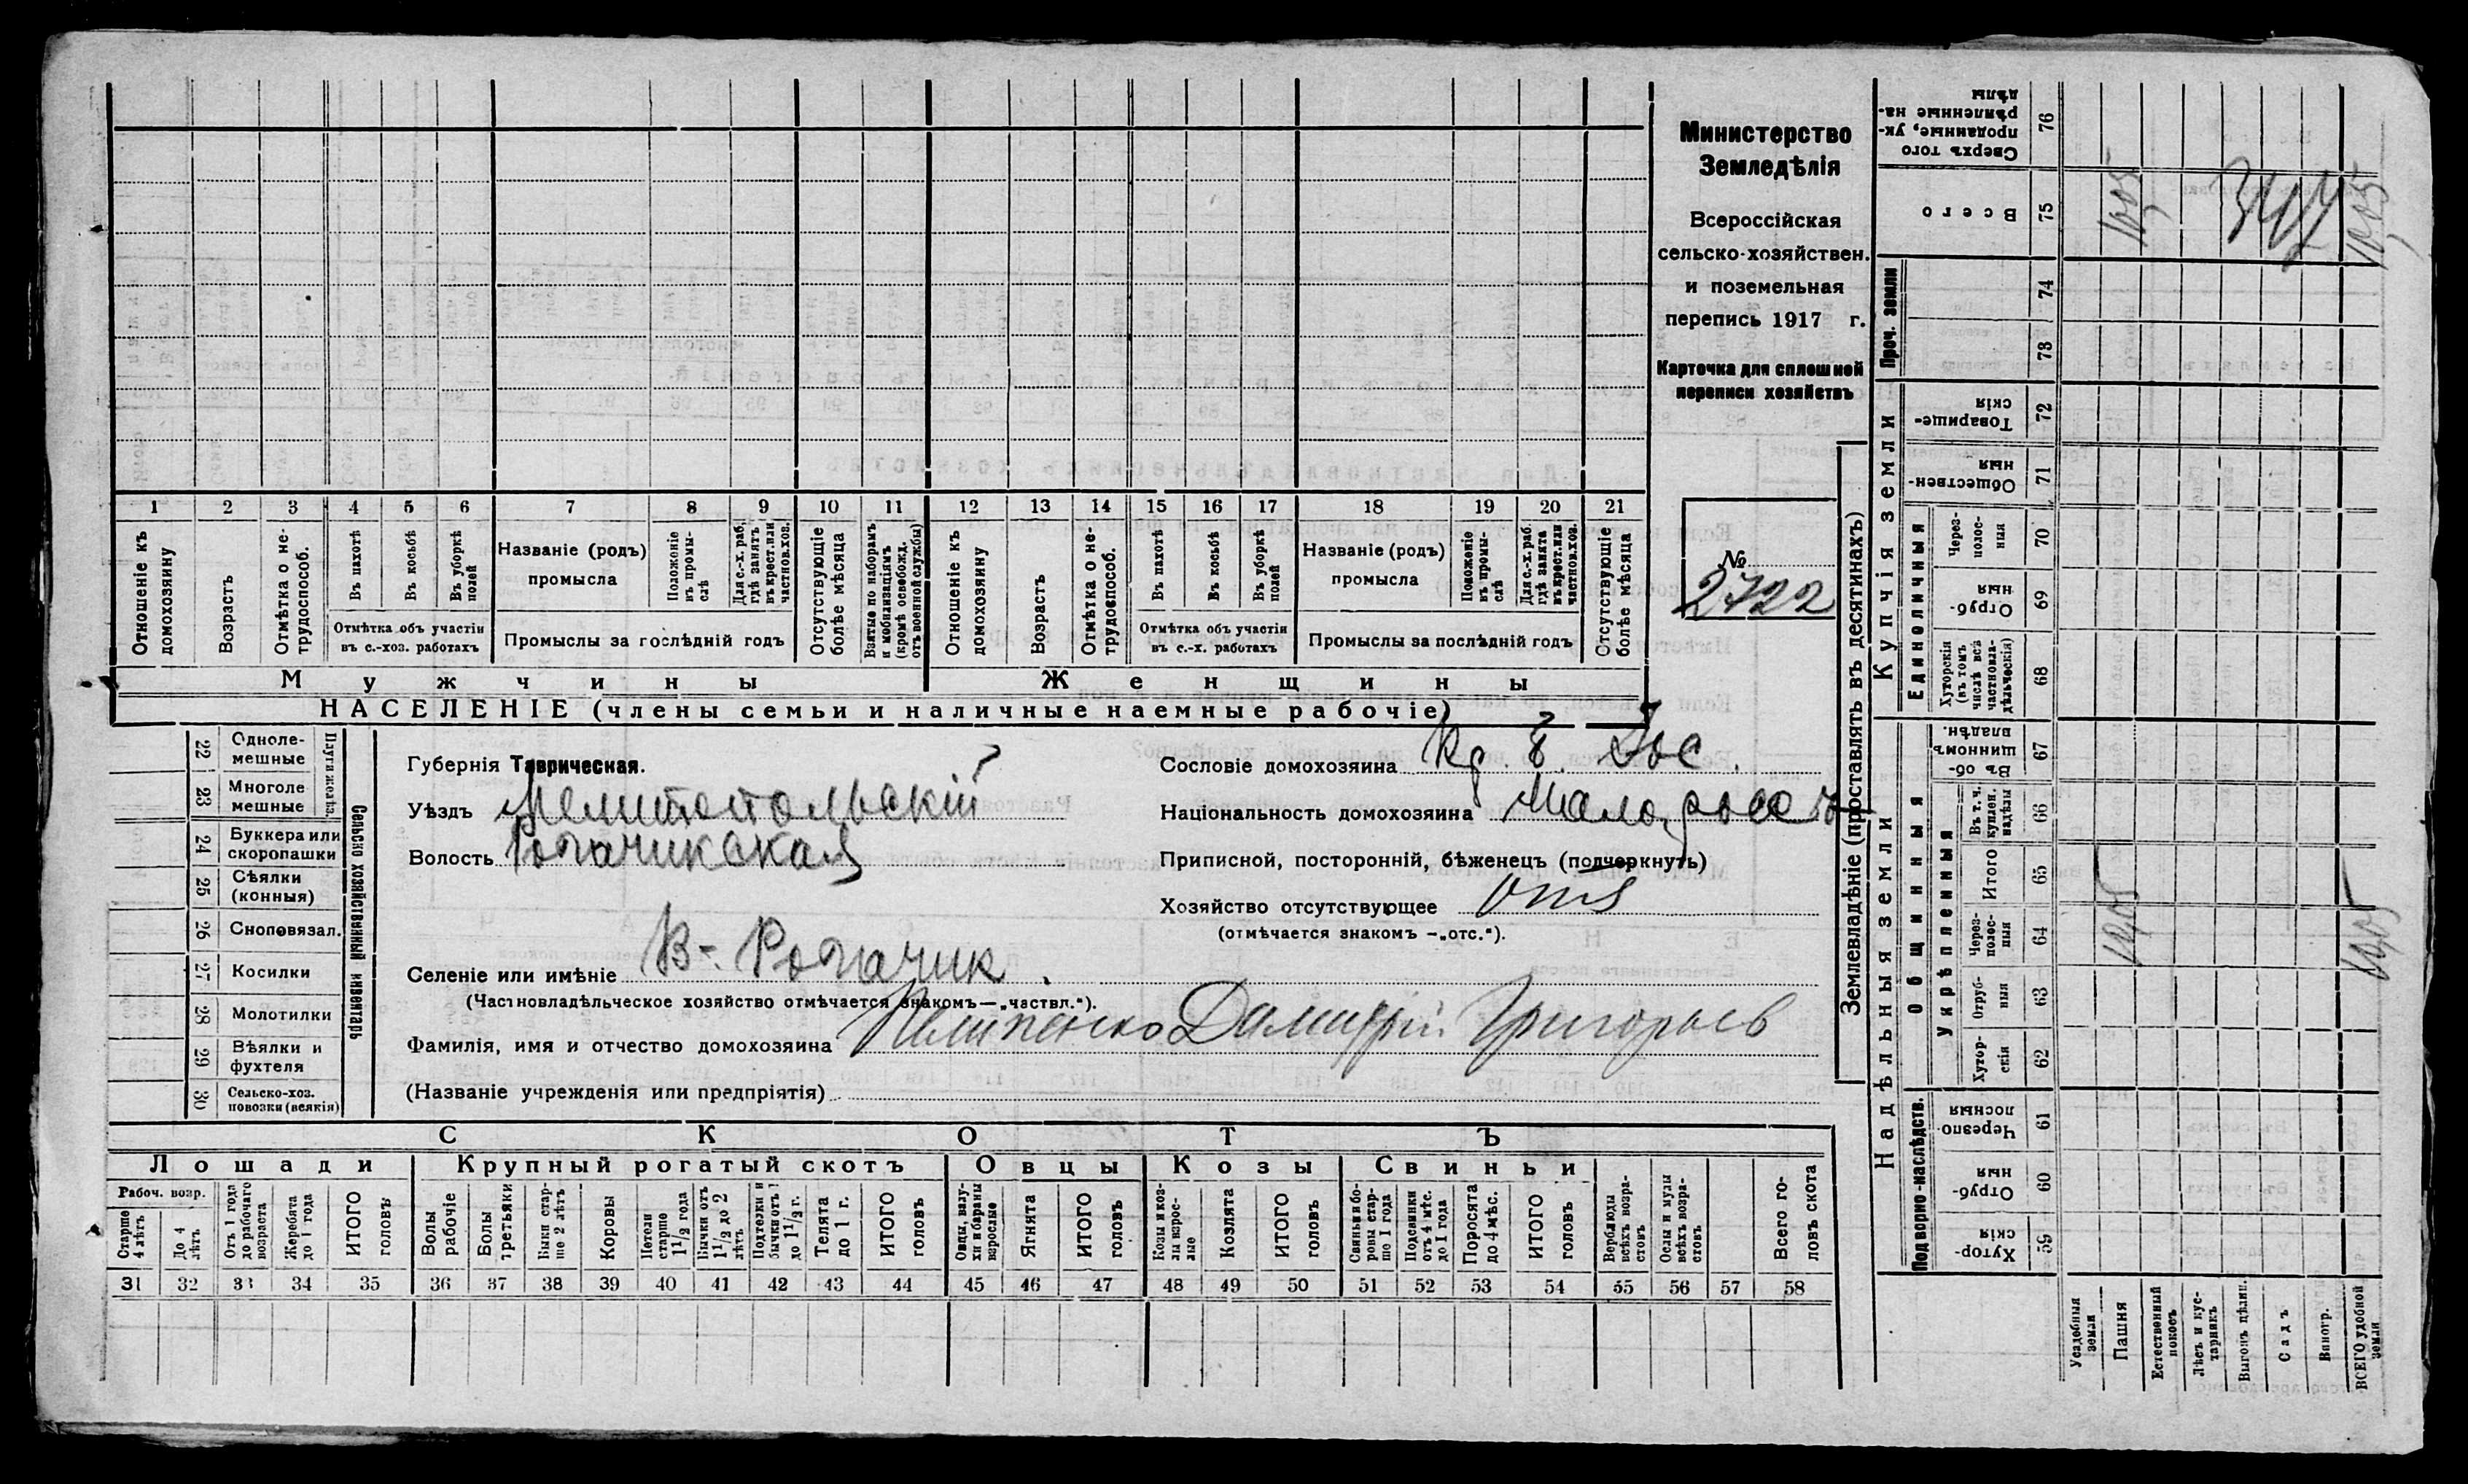 Министерство
Земледѣлія
Всероссійская
сельско-хозяйствен.
и поземельная
перепись 1917 г.
Карточка для сплошной
переписи хозяйствъ
№
2722
1 2 3 4 5 6 7 8 9 10 11 12 13 14 15 16 17 18 19 20 21
Отношеніе къ домохозяину
Возрастъ
Отмѣтка о не-трудоспособ.
Въ пахотѣ
Въ косьбѣ
Въ уборкѣ полей
Отмѣтка объ участіи
въ с.-хоз. работахъ
Названіе (родъ)
промысла
Положеніе въ промы-слѣ
Для с.-х. раб. гдѣ занятъ въ крест. или частнов. хоз.
Промыслы за послѣдній годъ
Отсутствующіе болѣе мѣсяца
Взятые по наборамъ и мобилизаціямъ (кромѣ освобожд. отъ военной службы)
Отношеніе къ домохозяину
Возрастъ
Отмѣтка о не-трудоспособ.
Въ пахотѣ
Въ косьбѣ
Въ уборкѣ полей
Отмѣтка объ участіи
въ с.-х. работахъ
Названіе (родъ)
промысла
Положеніе въ промы-слѣ
Для с.-х. раб. гдѣ занята въ крест. или частнов. хоз.
Промыслы за послѣдній годъ
Отсутствующіе болѣе мѣсяца
Мужчины
Женщины
НАСЕЛЕНІЕ (члены семьи и наличные наемные рабочіе)
Сельско хозяйственный инвентарь
Плуги желѣз.
22 Одноле-мешные
23 Многоле мешные
24 Буккера или скоропашки
25 Сѣялки (конныя)
26 Сноповязал.
27 Косилки
28 Молотилки
29 Вѣялки и фухтеля
30 Сельско-хоз. повозки (всякія)
Губернія Таврическая.
Уѣздъ Мелитопольскій
Волость Рогачикская
Селеніе или имѣніе В-. Рогачик
(Частновладѣльческое хозяйство отмѣчается знакомъ—„частвл.“).
Фамилія, имя и отчество домохозяина Григорьев
(Названіе учрежденія или предпріятія)
Сословіе домохозяина
Національность домохозяина Малоросс
Приписной, посторонній, бѣженецъ (подчеркнуть)
Хозяйство отсутствующее отс
(отмѣчается знакомъ —„отс.“).
СКОТЪ
Лошади
Крупный рогатый скотъ
Овцы
Козы
Свиньи
Рабоч. возр.
Старше 4 лѣтъ
До 4 лѣтъ
Отъ 1 года до рабочаго возраста
Жеребята до 1 года
ИТОГО головъ
Волы рабочіе
Волы третьяки
Быки стар-ше 2 лѣтъ
Коровы
Нетели старше 1½ года
Бычки отъ 1½ до 2 лѣтъ
Подтелки и бычки отъ 1 до 1½ г.
Телята до 1 г.
ИТОГО головъ
Овцы, валу-хи и бараны взрослые
Ягнята
ИТОГО головъ
Козы и коз-лы взрос-лые
Козлята
ИТОГО головъ
Свиньи и бо-ровы стар-ше 1 года
Подсвинки отъ 4 мѣс. до 1 года
Поросята до 4 мѣс.
ИТОГО головъ
Верблюды всѣхъ возра-стовъ
Ослы и мулы всѣхъ возра-стовъ
Всего го-ловъ скота
31 32 33 34 35 36 37 38 39 40 41 42 43 44 45 46 47 48 49 50 51 52 53 54 55 56 57 58
Землевладѣніе (проставлять въ десятинахъ)
Надѣльныя земли
Купчія земли
Проч. земли
Подворно-наслѣдств.
Общинныя
Укрѣпленныя
Единоличныя
Хутор-скія 59
Отруб-ныя 60
Черезпо-лосныя 61
Хутор-скія 62
Отруб-ныя 63
Через-полос-ныя 64
Итого 65
Въ т. ч. куплен. надѣлы 66
Въ об-щинномъ владѣн. 67
Хуторскія (въ томъ числѣ всѣ частновла-дѣльческія) 68
Отруб-ныя 69
Через-полос-ныя 70
Обществен-ныя 71
Товарище-скія 72
73
74
Всего 75
Сверхъ того проданные, ук-рѣпленные на-дѣлы 76
Усадебныя земли
Пашня
Естественный покосъ
Лѣсъ и кус-тарникъ
Выгонъ цѣлин.
Садъ
Виногр.
ВСЕГО удобной земли